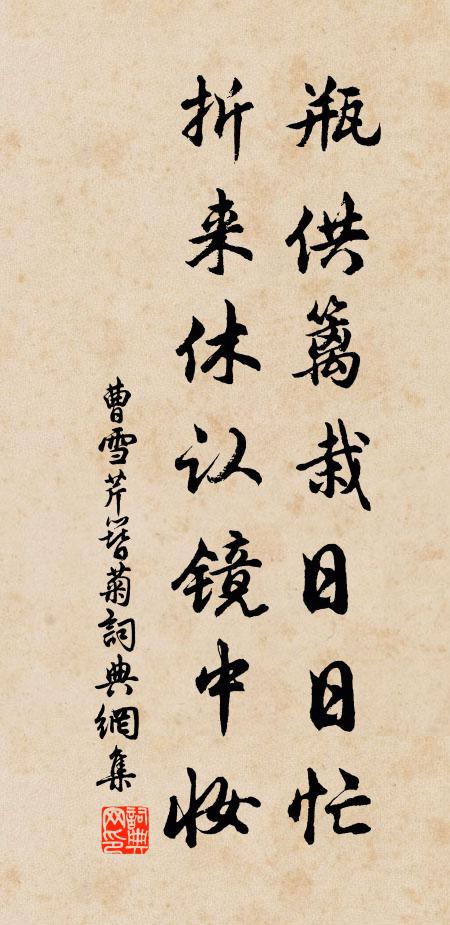 瓶供篱栽日日忙
折来休认镜中妆
曹雪芹簪菊詞典網集
詞典網印